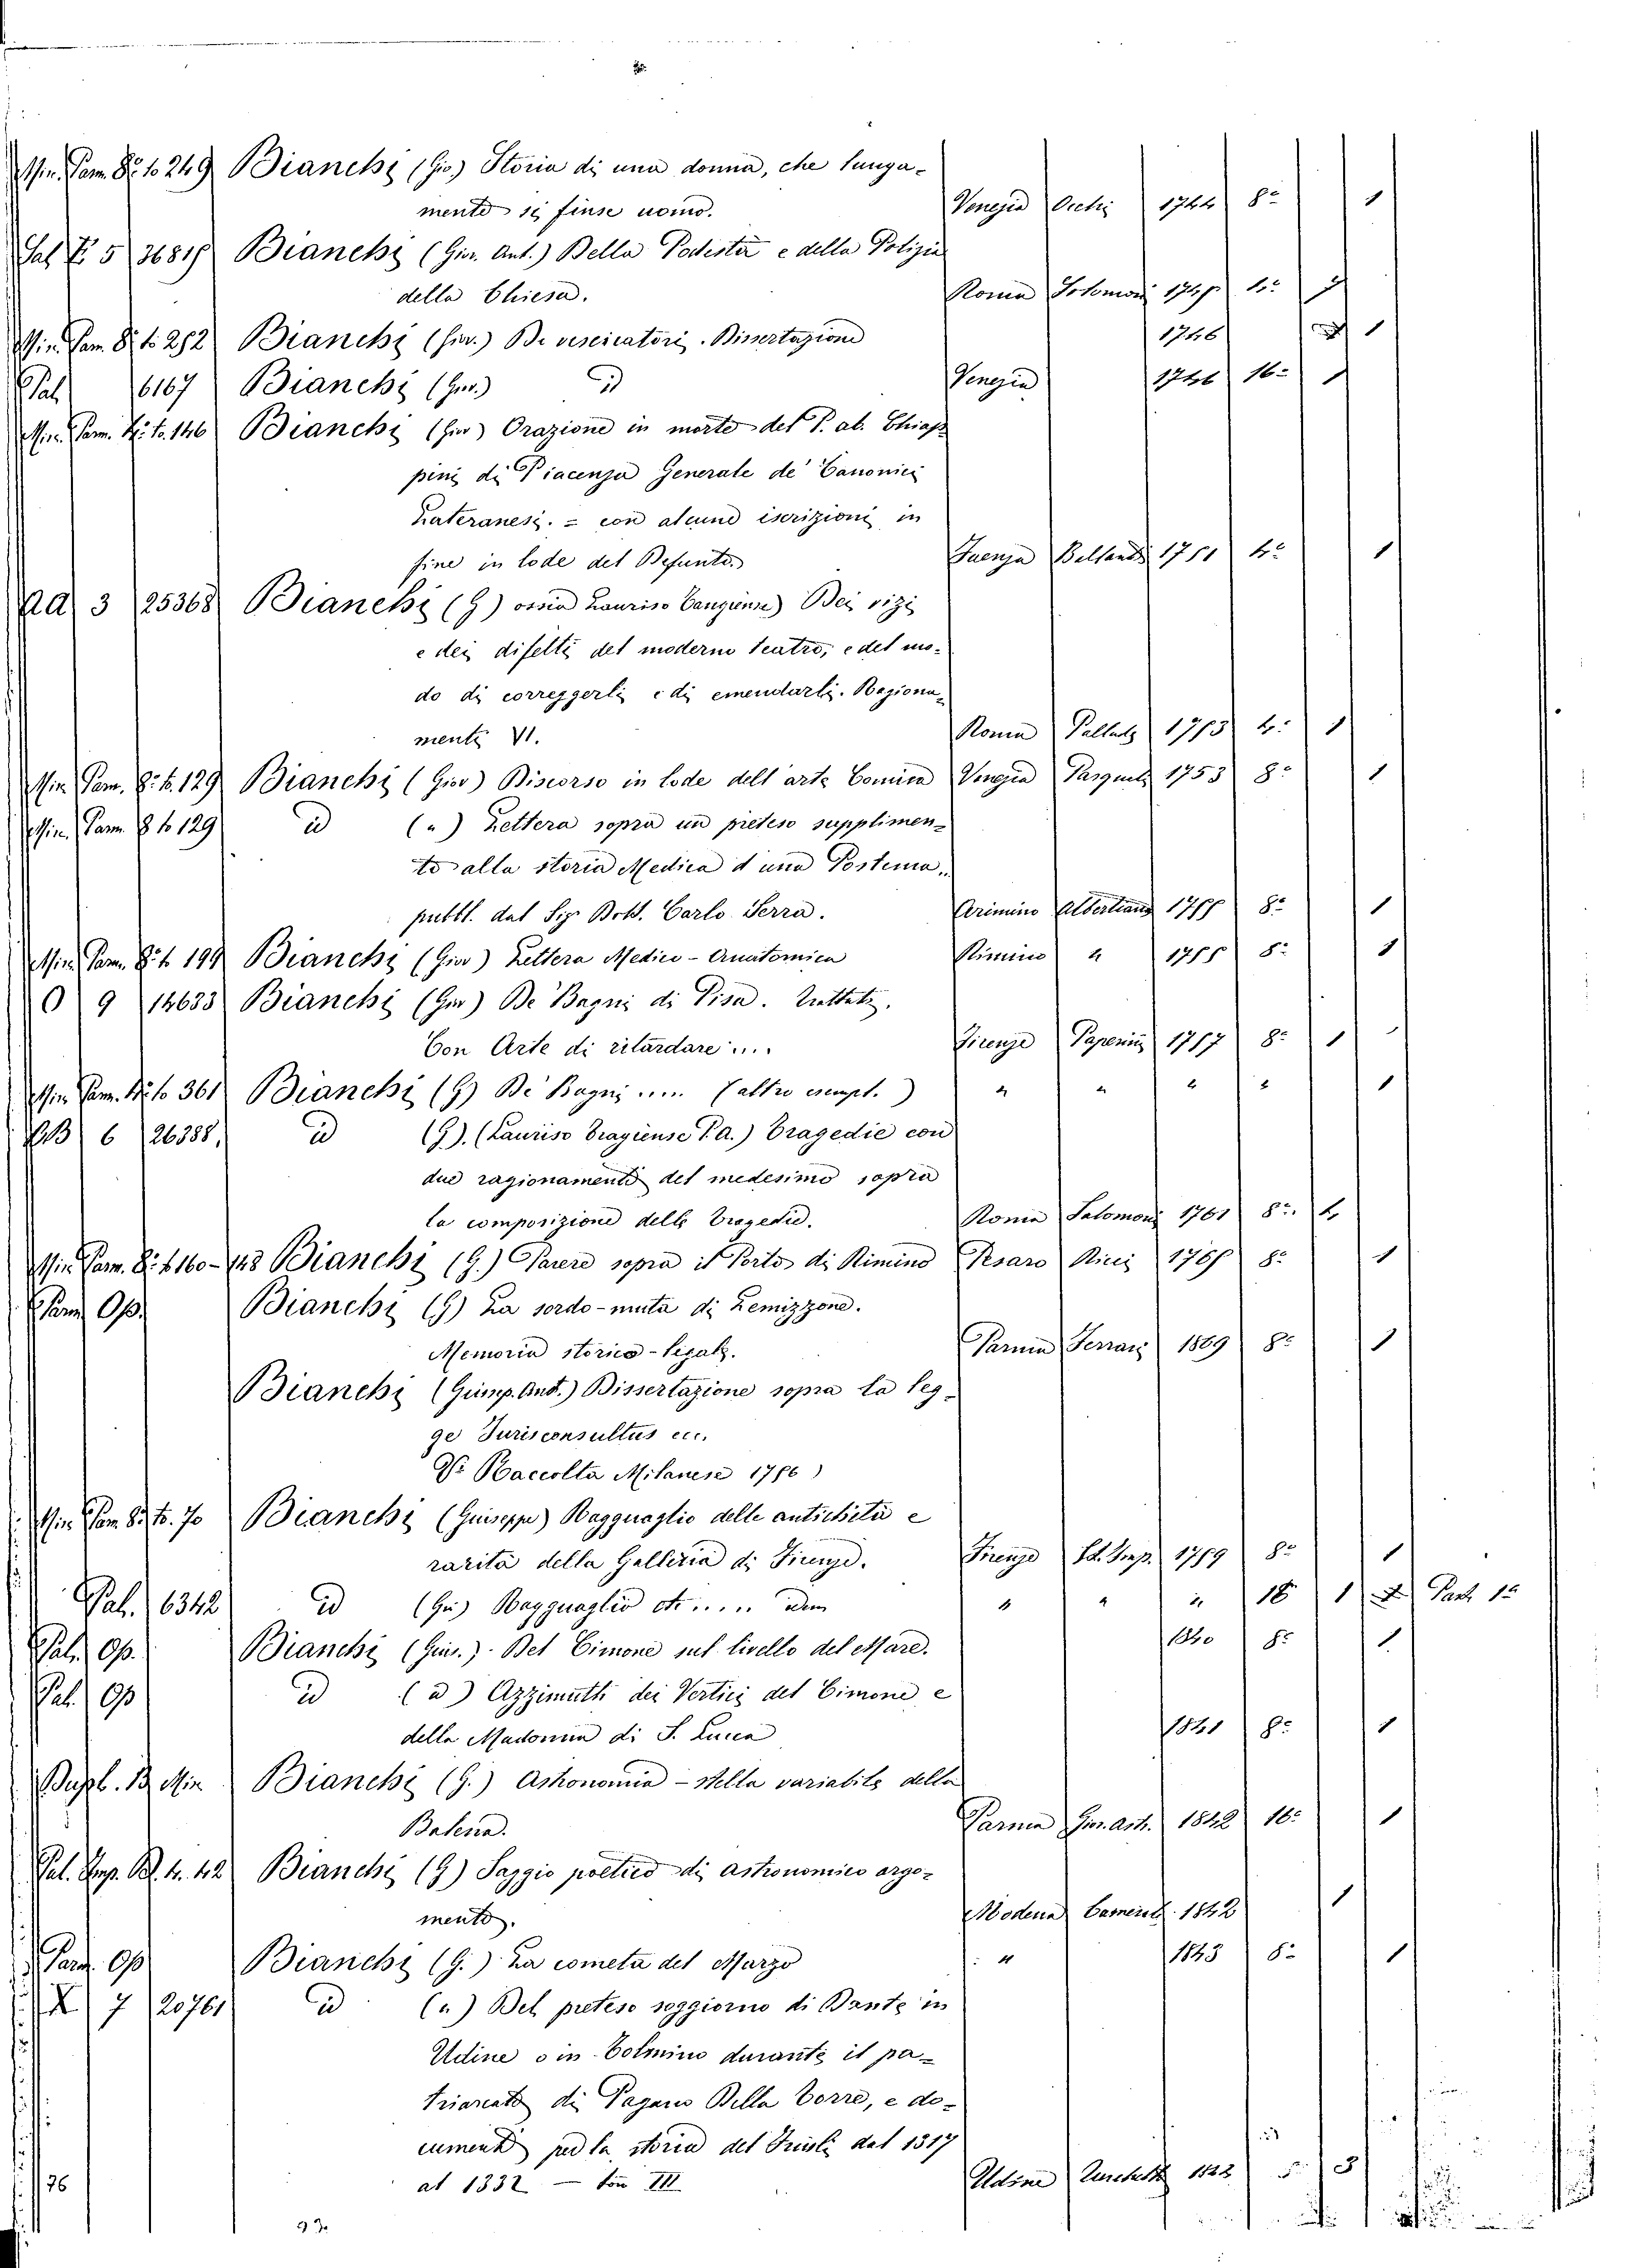 Min. Parm. 8º to 249 Bianchi (Gio) Storia di una donna, che lunga-
mente si finse uomo. Venezia Occhi 1744 8º 1
Sal F 5 36819 Bianchi (Giv. Ant.) Della Podestà e della Polizia
della Chiesa. Roma Solomoni
Min. Parm. 8º to 282 Bianchi (Giov.) De vescicatori. Dissertazione 1746 1
Pal 6167 Bianchi (Giov.) id Venezia 1746 16º 1
Min. Parm. 4º to. 146 Bianchi (Giov) Orazione in morte del P. ab. Chiap
pini di Piacenza Generale de' Canonici
Lateranesi. = con alcune iscrizioni in
fine in lode del Defunto. Faenza 1751 4º 1
AA 3 25368 Bianchi (G) ossia Lauriso Dei vizi
e dei difetti del moderno teatro, e del mo-
do di correggerli e di emendarli. Ragiona-
menti VI. Roma Pallade 1753 4º 1
Min. Parm. 8º to. 129 Bianchi (Giov) Discorso in lode dell'arte Comica Venezia Pasquali 1753 8º 1
Min. Parm. 8 to 129 id (") Lettera sopra un preteso supplimen-
to alla storia Medica d'una Postema,
pubbl. dal Sigr Dott. Carlo Serra. Arimino Albertiani 8º 1
Min. Parm. 8º to 199 Bianchi (Giov) Lettera Medico-Anatomica Rimino " 1755 8º 1
O 9 14633 Bianchi (Giov) De Bagni di Pisa. Trattato.
Con Arte di ritardare .... Firenze Paperini 1757 8º 1
Min. Parm. 4º to 361 Bianchi (G) De' Bagni .... (altro esempl.) " " " " 1
BB 6 26388 id (G). (Lauriso Tragiense P.A.) Tragedie con
due ragionamenti del medesimo sopra
la composizione delle Tragedie. Roma Salomoni 1761 8º.
Min. Parm. 8º to 160-143 Bianchi (G.) Parere sopra il Porto di Rimino Pesaro 8º 1
Parm Op. Bianchi (G) La sordo-muta di Lemizzone.
Memoria storico-legale. Parma Ferrari 1869 8º 1
Bianchi (Giusep. Ant.) Dissertazione sopra la leg-
ge Jurisconsultus ecc.
Vº Raccolta Milanese 1756)
Min. Parm 8º to. 70 Bianchi (Guiseppe) Ragguaglio delle antichità e
rarità della Galleria di Firenze. Firenze St. Imp. 1759 8º 1
Pal. 6342 id (Giu) Ragguaglio etc..... idem " " " 18 1 Part. 1ª
Pal. Op. Bianchi (Gius.) Del Cimone sul livello del Mare. 1840 8º 1
Pal. Op id (id) Azzimutti dei Vertici del Cimone e
della Madonna di S. Luca 1841 8º 1
Dupl. B. Min Bianchi (G.) Astronomia - stella variabile della
Balena. Parma 1842 16º 1
Pal. Imp. B. 4. 42 Bianchi (G) Saggio poetico di astronomico argo-
mento. Modena 1842 1
Parm. Op Bianchi (G.) La cometa del Marzo " 1843 8º 1
X 7 20761 id (") Del preteso soggiorno di Dante in
Udine o in Tolmino durante il pa-
triarcato di Pagano Della Torre, e do-
cumenti per la storia del Friuli dal 1317
al 1332 — tom III Udine
76